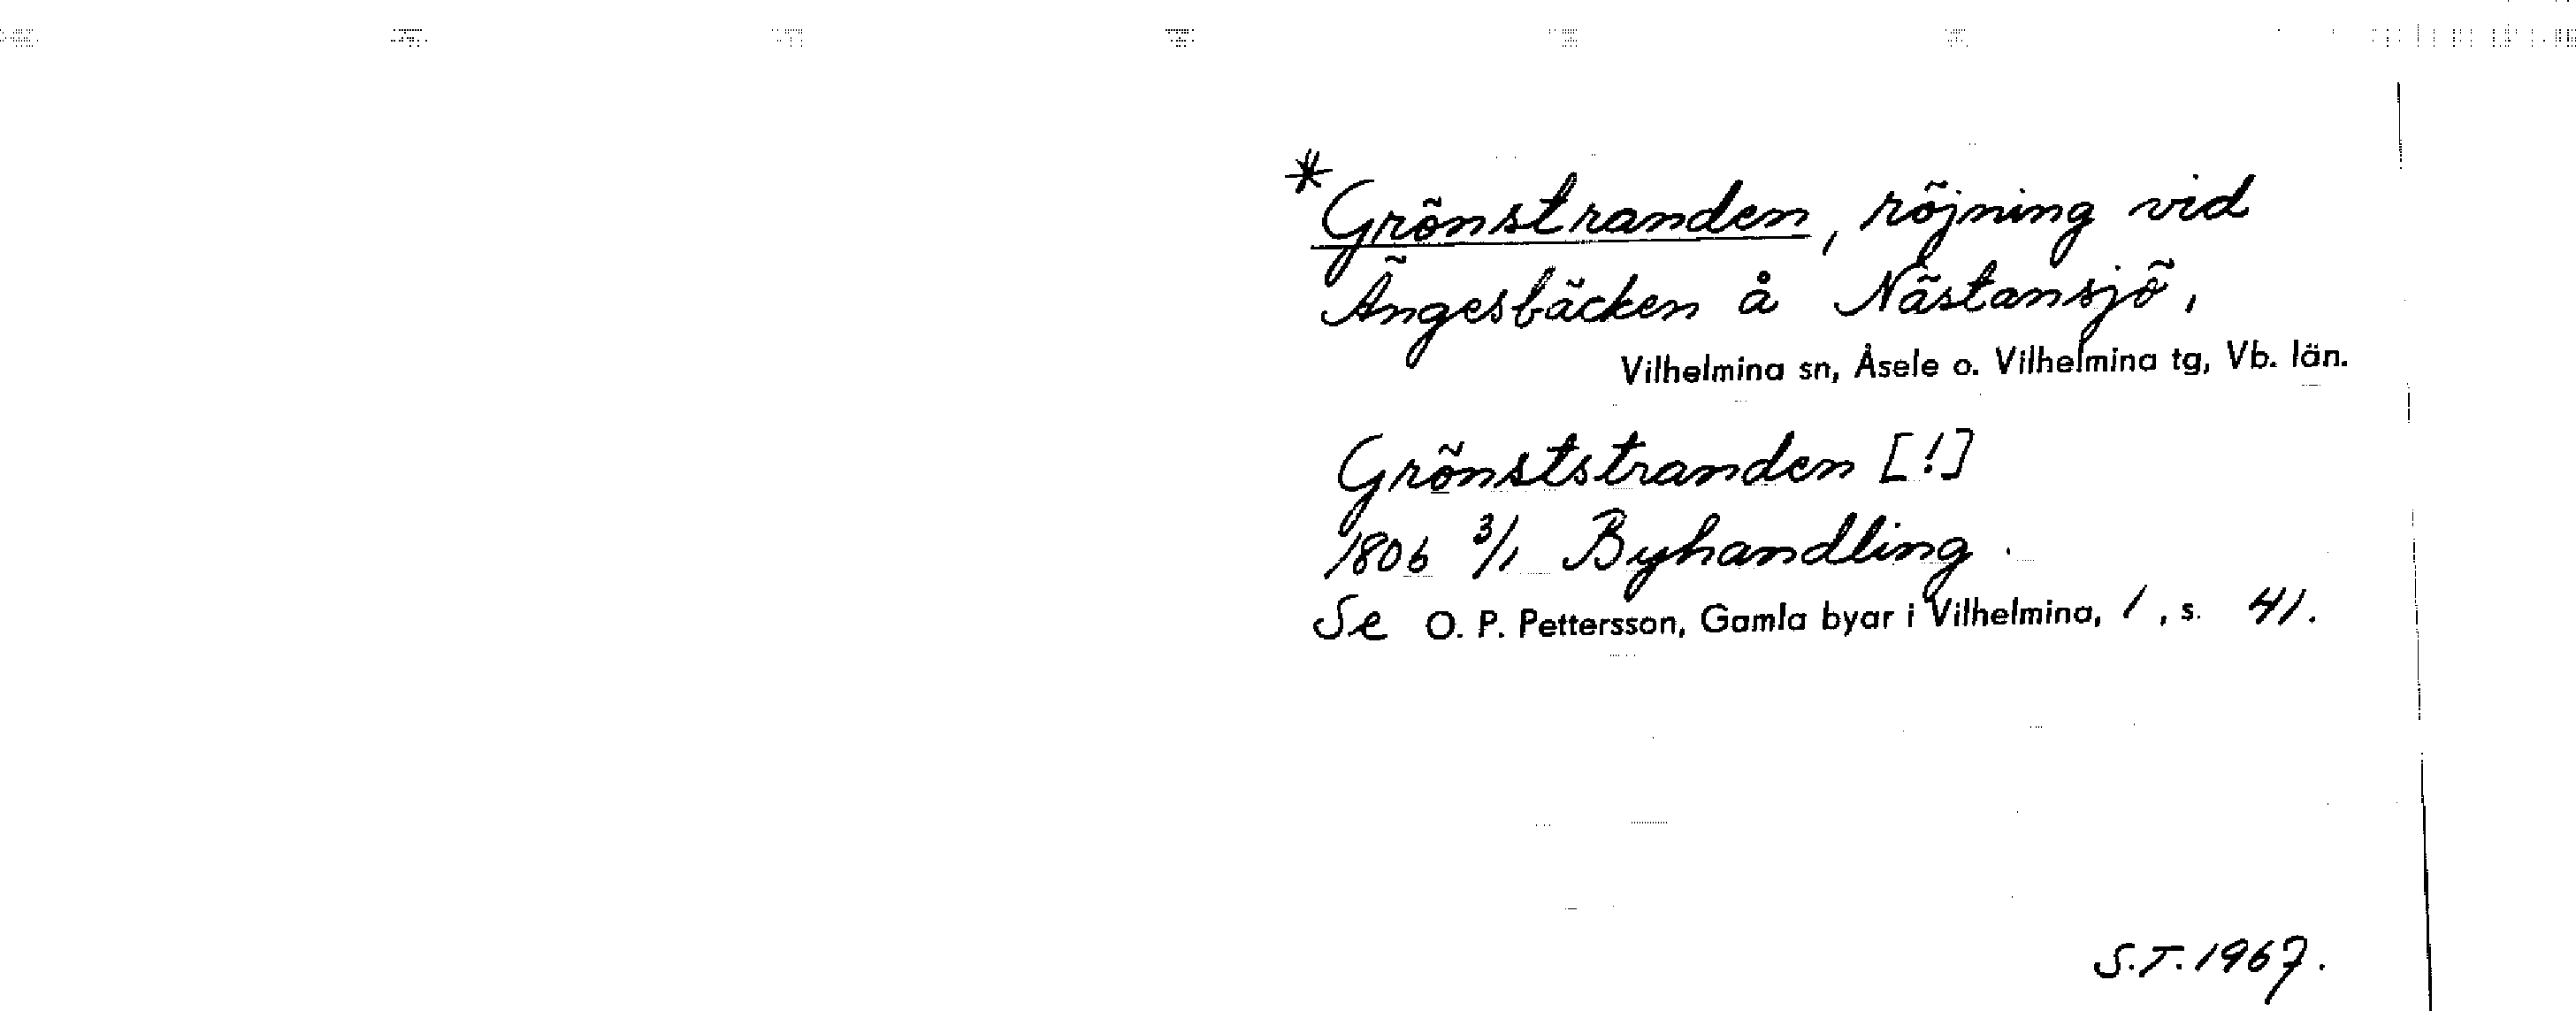 *Grönstranden, röjning vid
Ängesbäcken å Nästansjö,
Vilhelmina sn, Åsele o. Vilhelmina tg, Vb. län.
Grönststranden [!]
1806 3/1 Byhandling.
Se O. P. Pettersson, Gamla byar i Vilhelmina, 1, s. 41.
S.T. 1967.